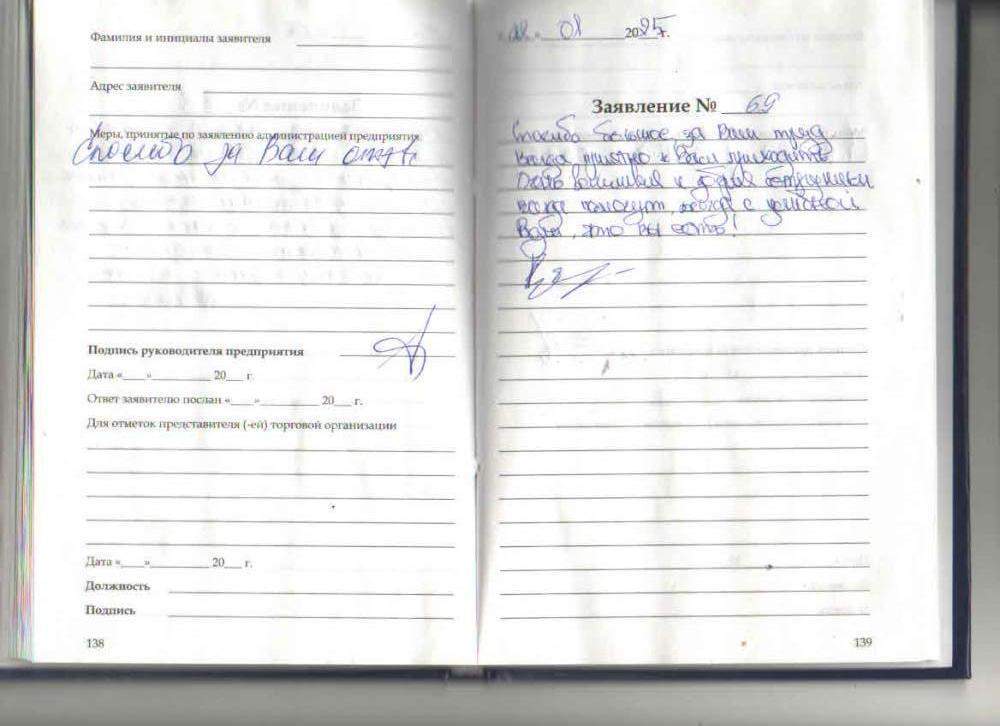 Фамилия и инициалы заявителя
Адрес заявителя
Меры, принятые по заявлению администрацией предприятия
Спасибо за Ваш отзыв
Подпись руководителя предприятия
Дата «___»__________ 20___ г.
Ответ заявителю послан «___»__________ 20___ г.
Для отметок представителя (-ей) торговой организации
Дата «___»__________ 20___ г.
Должность
Подпись
138
08 2025 г.
Заявление № 69
Спасибо большое за Ваш труд
приятно к Вам приходить
и добрые сотрудники
помогут, с улыбкой
это вы есть!
139